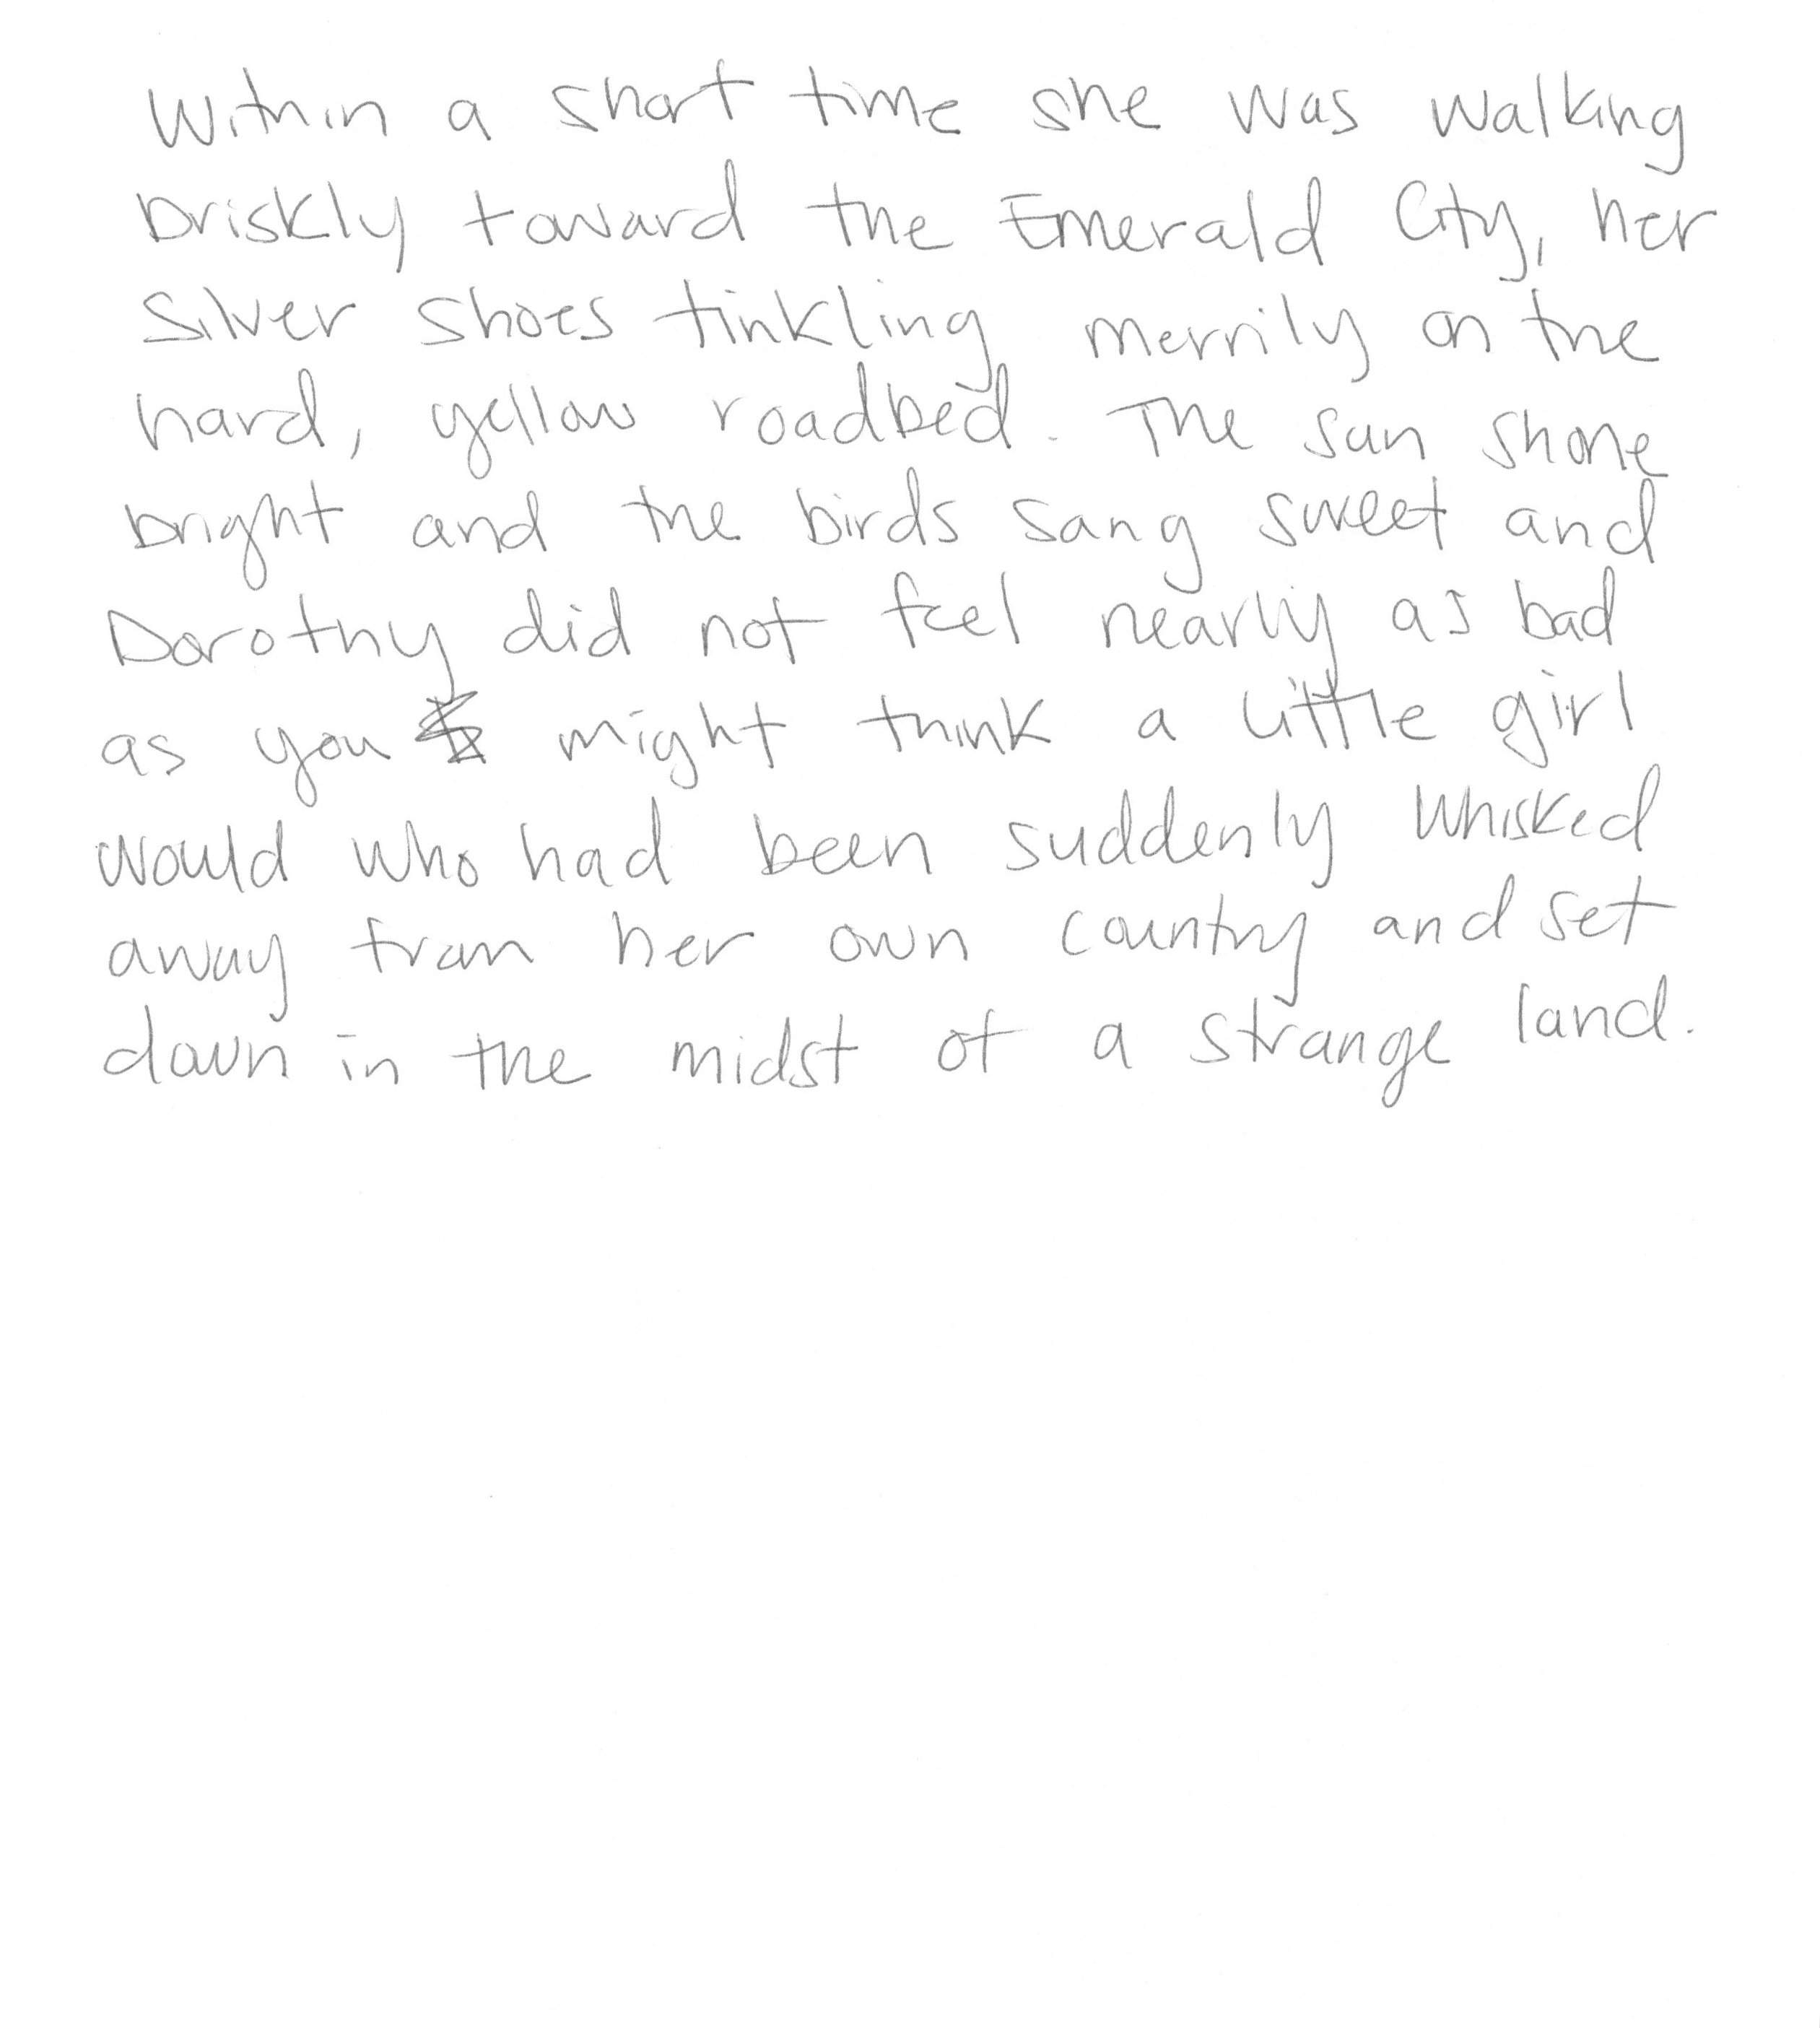 Within a short time she was walking
briskly toward the Emerald City, her
silver shoes tinkling merrily on the
hard, yellow roadbed. The sun shone
bright and the birds sang sweet and
Dorothy did not feel nearly as bad
as you might think a little girl
would who had been suddenly whisked
away from her own country and set
down in the midst of a strange land.